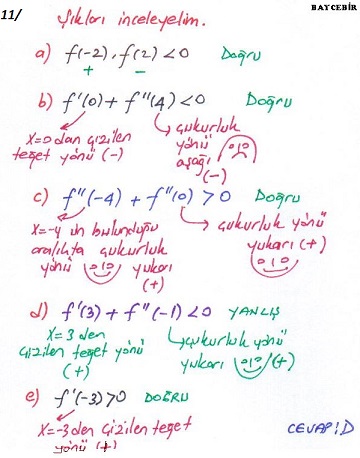 11/
BAYCEBİR
Şıkları inceleyelim.
a) f(-2).f(2)<0 Doğru
+ -
b) f'(0)+f''(4)<0 Doğru
x=0 dan çizilen
teğet yönü (-)
çukurluk
yönü
aşağı
(-)
c) f''(-4)+f''(0)>0 Doğru
x=-4 ün bulunduğu
aralıkta çukurluk
yönü yukarı
(+)
çukurluk yönü
yukarı (+)
d) f'(3)+f''(-1)<0 YANLIŞ
x=3 den
çizilen teğet yönü
(+)
çukurluk yönü
yukarı (+)
e) f'(-3)>0 DOĞRU
x=-3 den çizilen teğet
yönü (+)
CEVAP:D